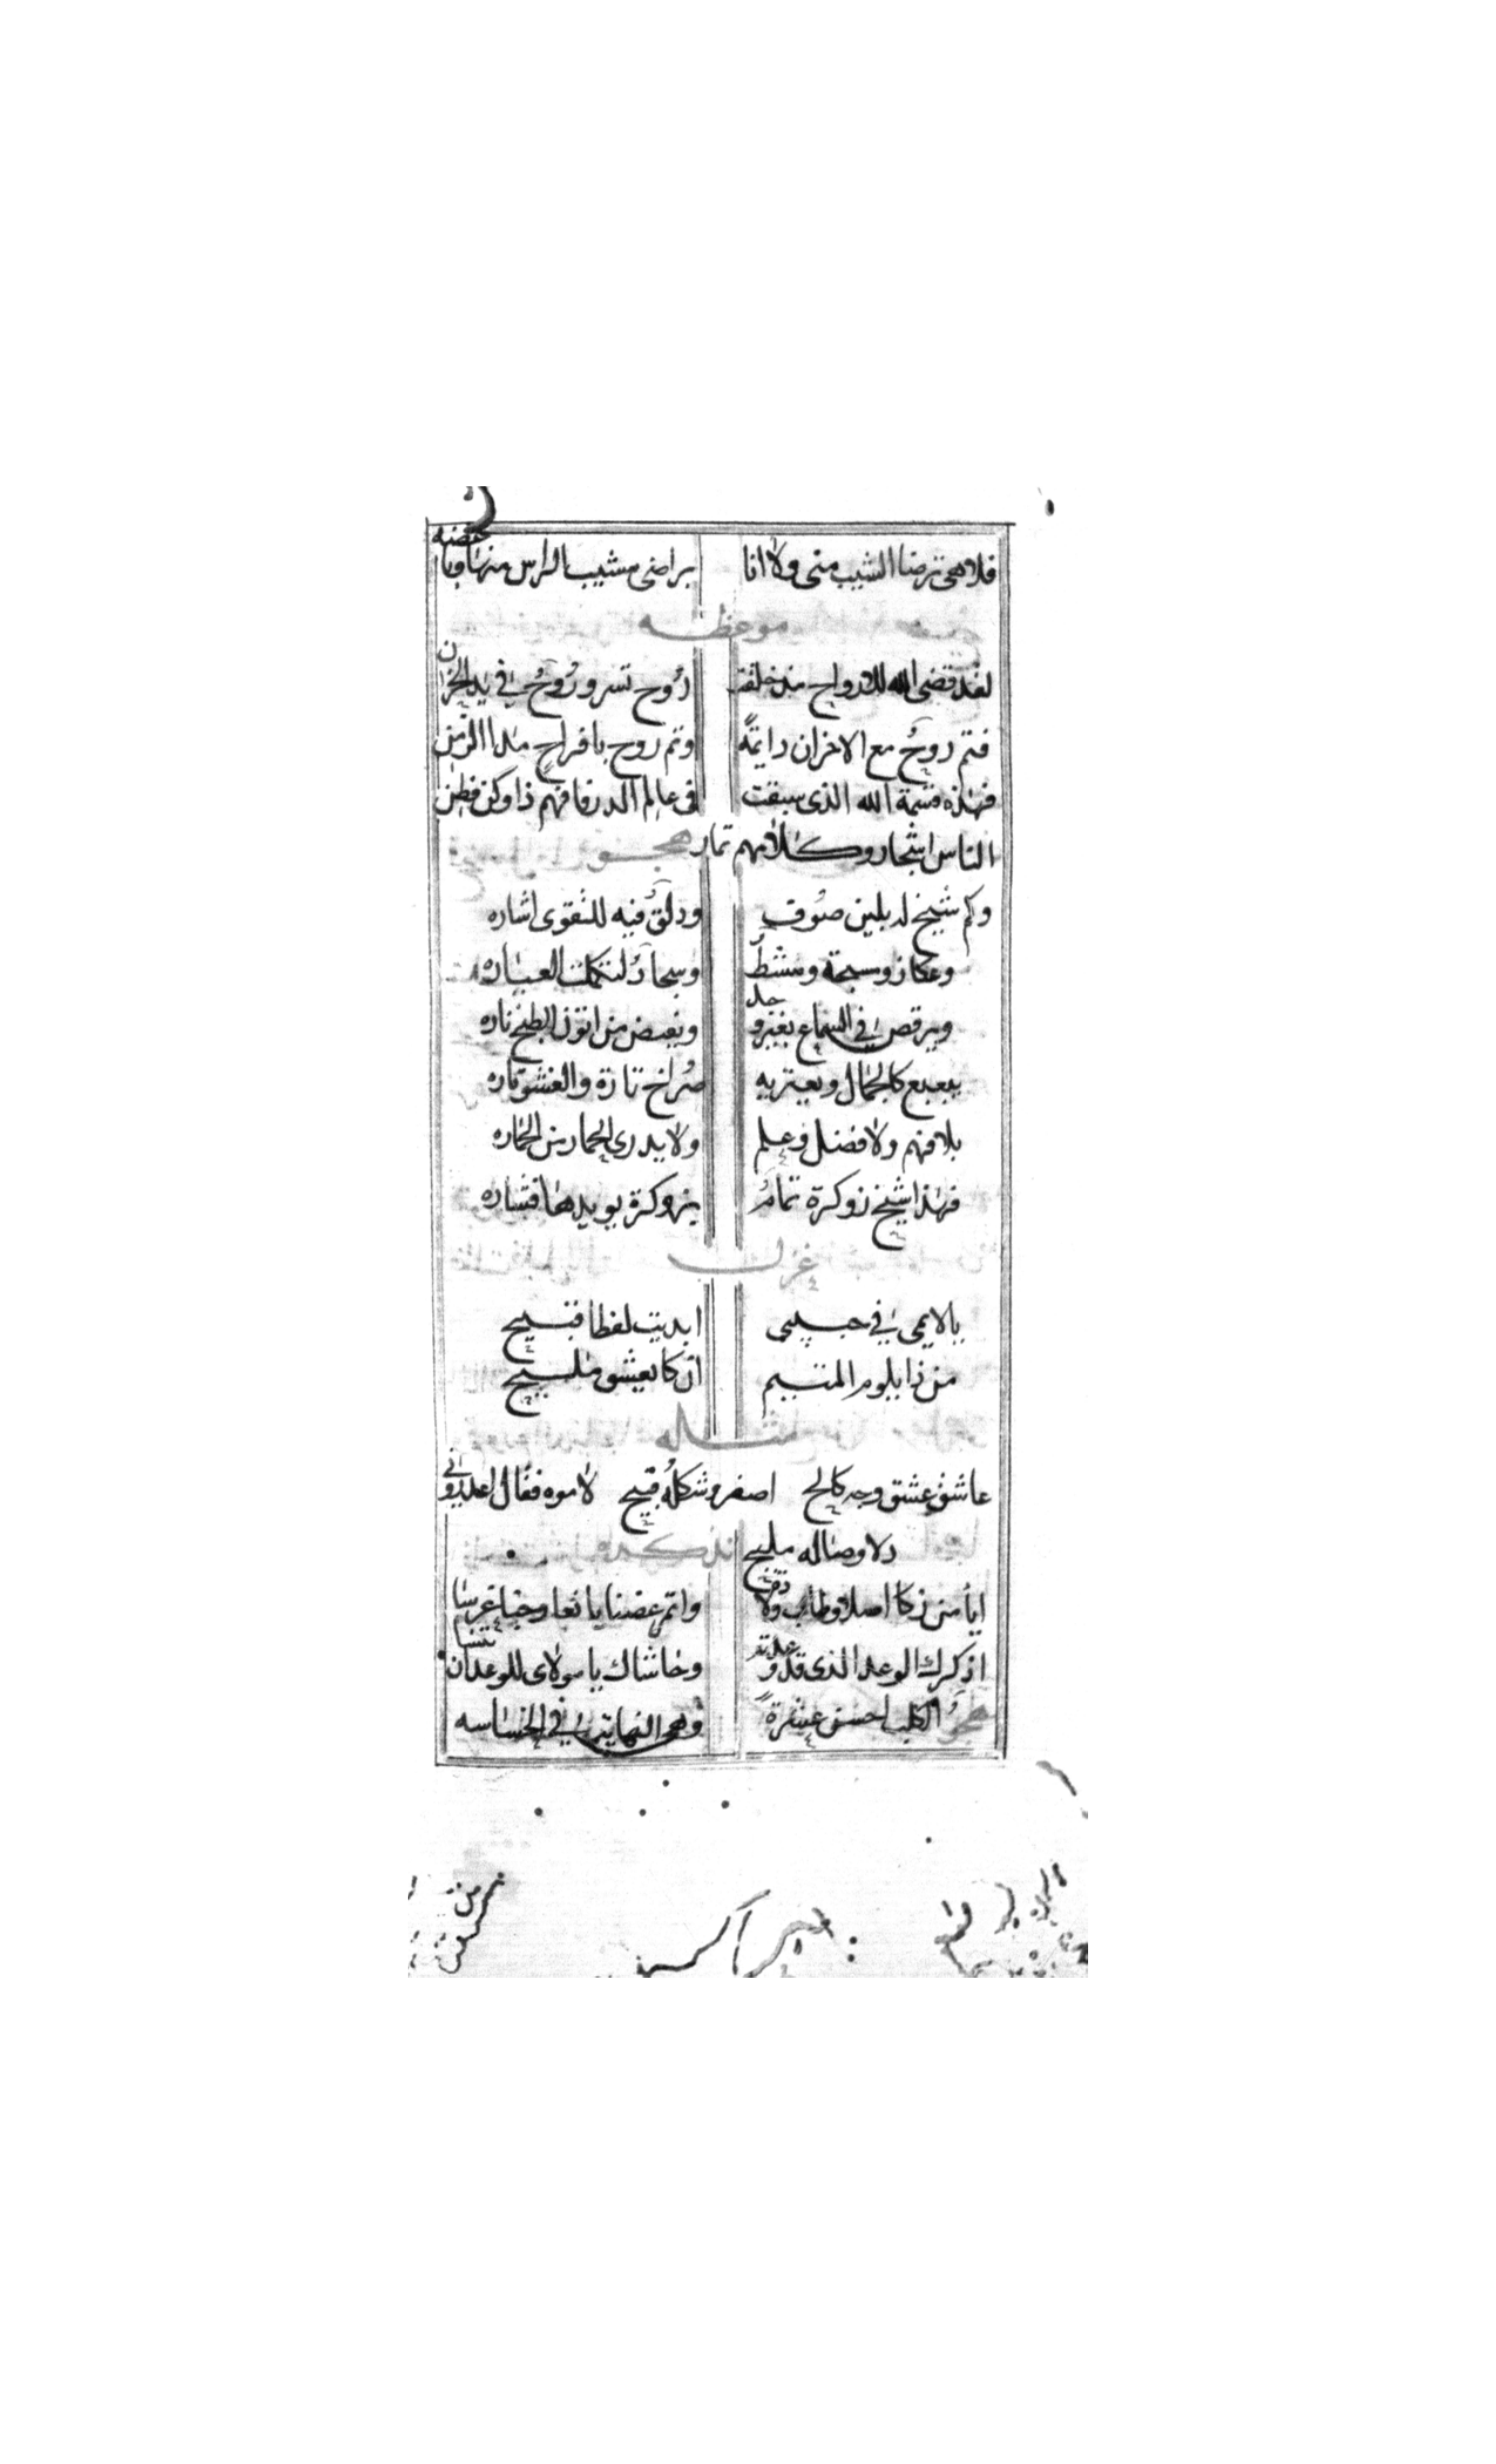 فلا هى ترضا الشيب منى ولا انا براضى مشيب الراس منها
موعظه
لقد قضى الله للارواح مذ خلقت رُوح تسر ورُوحُ في يد الحزن
فتم روحُ مع الاحزان دايمةً وتم روح بافراح مدا الزمن
فهذه قسمة الله الذى سبقت فى عالم الذر فافهم ذا وكن فطن
الناس اشجار وكلامهم ثمار هجو
وكم شيخ له بلين صُوف ودلقُ فيه للتقوى اشاره
وعكاز وسبحة ومشط وسجادُ لتكملت العباره
ويرقص في السماع بغير وجد ويغيض من اتون الطبخ ناره
يبعبع كالجمال ويعتريه صُراخ تارة والغشو تاره
بلا فهم ولا فضل وعلم ولا يدرى الحمار من الحماره
فهذا شيخ زوكرة تمامُ يزوكرة يويدها فشاره
غزل
يالايمى في حبيبى ابديت لفظا قبيح
من ذا يلوم المتيم ان كان يعشق مليح
مثله
عاشق عشق وجه كالح اصفر وشكلُه قبيح لاموه فقال اعذرونى
دلا وصاله مليح تذكره
ايا من زكا اصلا وطاب ولادة واثمر غصنا يانعا وجنا غرسا
اذكرك الوعد الذى قد وعدته وحاشاك يا مولاى للوعد ان تنسا
هجوُ الكلب احسن عشرةً وهو النهاية في الخساسه